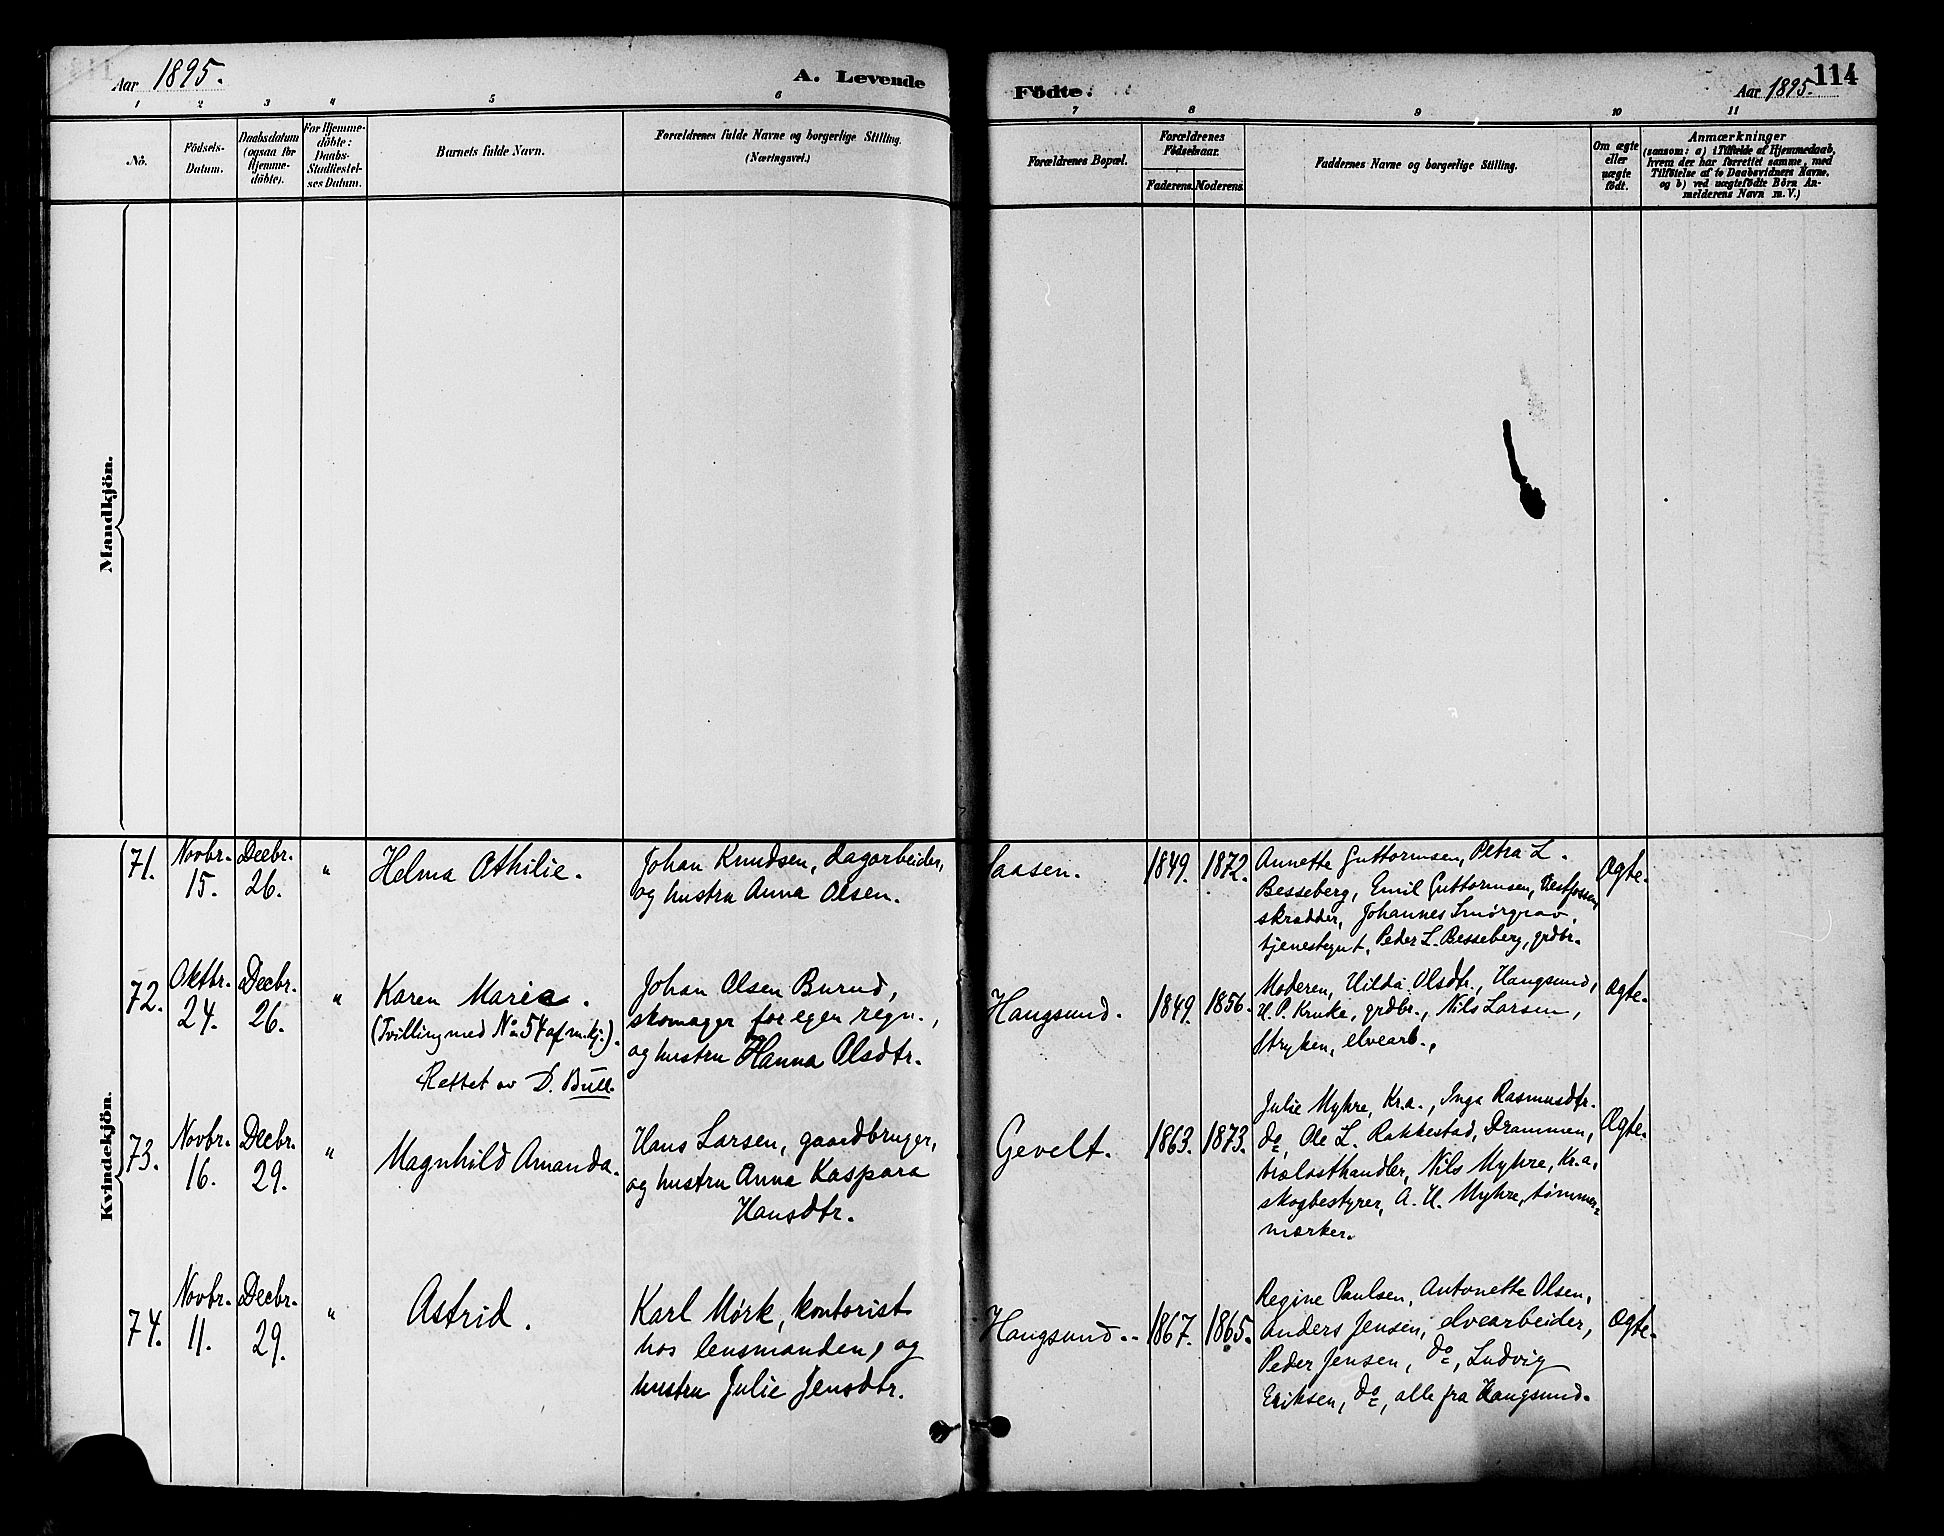 Aar 1895.
A. Levende
1 2 3 4 5 6
No.
Födsels-
Datum.
Daabsdatum
(ogsaa for
Hjemme-
döbte).
For Hjemme-
döbte:
Daabs-
Stadfæstel-
ses Datum.
Barnets fulde Navn.
Forældrenes fulde Navne og borgerlige Stilling.
(Næringsvei.)
Mandkjön.
Kvindekjön.
71.
Novbr.
15.
Decbr.
26.
"
Helma Othilie.
Johan Knudsen, dagarbeider,
og hustru Anna Olsen.
72.
Oktbr.
24.
Decbr.
26.
"
Karen Maria.
(Tvilling med No 54 af m.kj.).
Rettet av D. Bull.
Johan Olsen Burud,
skomager for egen regn.,
og hustru Hanna Olsdtr.
73.
Novbr.
16.
Decbr.
29.
"
Magnhild Amanda.
Hans Larsen, gaardbruger,
og hustru Anna Kaspara
Hansdtr.
74.
Novbr.
11.
Decbr.
29.
"
Astrid.
Karl Mørk, kontorist
hos lensmanden, og
hustru Julie Jensdtr.
Födte.
Aar 1895.
114
7 8 9 10 11
Forældrenes Bopæl.
Forældrenes
Födselsaar.
Faderens.
Moderens.
Faddernes Navne og borgerlige Stilling.
Om ægte
eller
uægte
födt.
Anmærkninger
(saasom: a) i Tilfælde af Hjemmedaab,
hvem der har forrettet samme, med
Tilföielse af to Daabsvidners Navne,
og b) ved uægtefödte Börn An-
melderens Navn m. V.)
Saasen.
1849.
1872.
Annette Guttormsen, Petra L.
Besseberg, Emil Guttormsen, Vestfossen,
skrædder, Johannes Smørgrav,
tjenestegut, Peder L. Besseberg, grdbr.
Ægte.
Haugsund.
1849.
1856.
Moderen, Hilda Olsdtr., Haugsund,
H. P. Kruke, grdbr., Nils Larsen,
Stryken, elvearb.,
Ægte.
Gevelt.
1863.
1873.
Julie Myhre, Kr.a., Inga Rasmusdtr.
do, Ole L. Rakkestad, Drammen,
trælasthandler, Nils Myhre, Kr.a,
skogbestyrer, A. H. Myhre, tømmer=
mærker.
Ægte.
Haugsund.
1867.
1865.
Regine Paulsen, Antonette Olsen,
Anders Jensen, elvearbeider,
Peder Jensen, do, Ludvig
Eriksen, do, alle fra Haugsund.
Ægte.